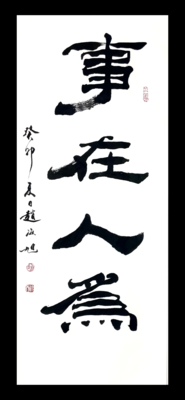 事在人為
癸卯夏日趙成旭